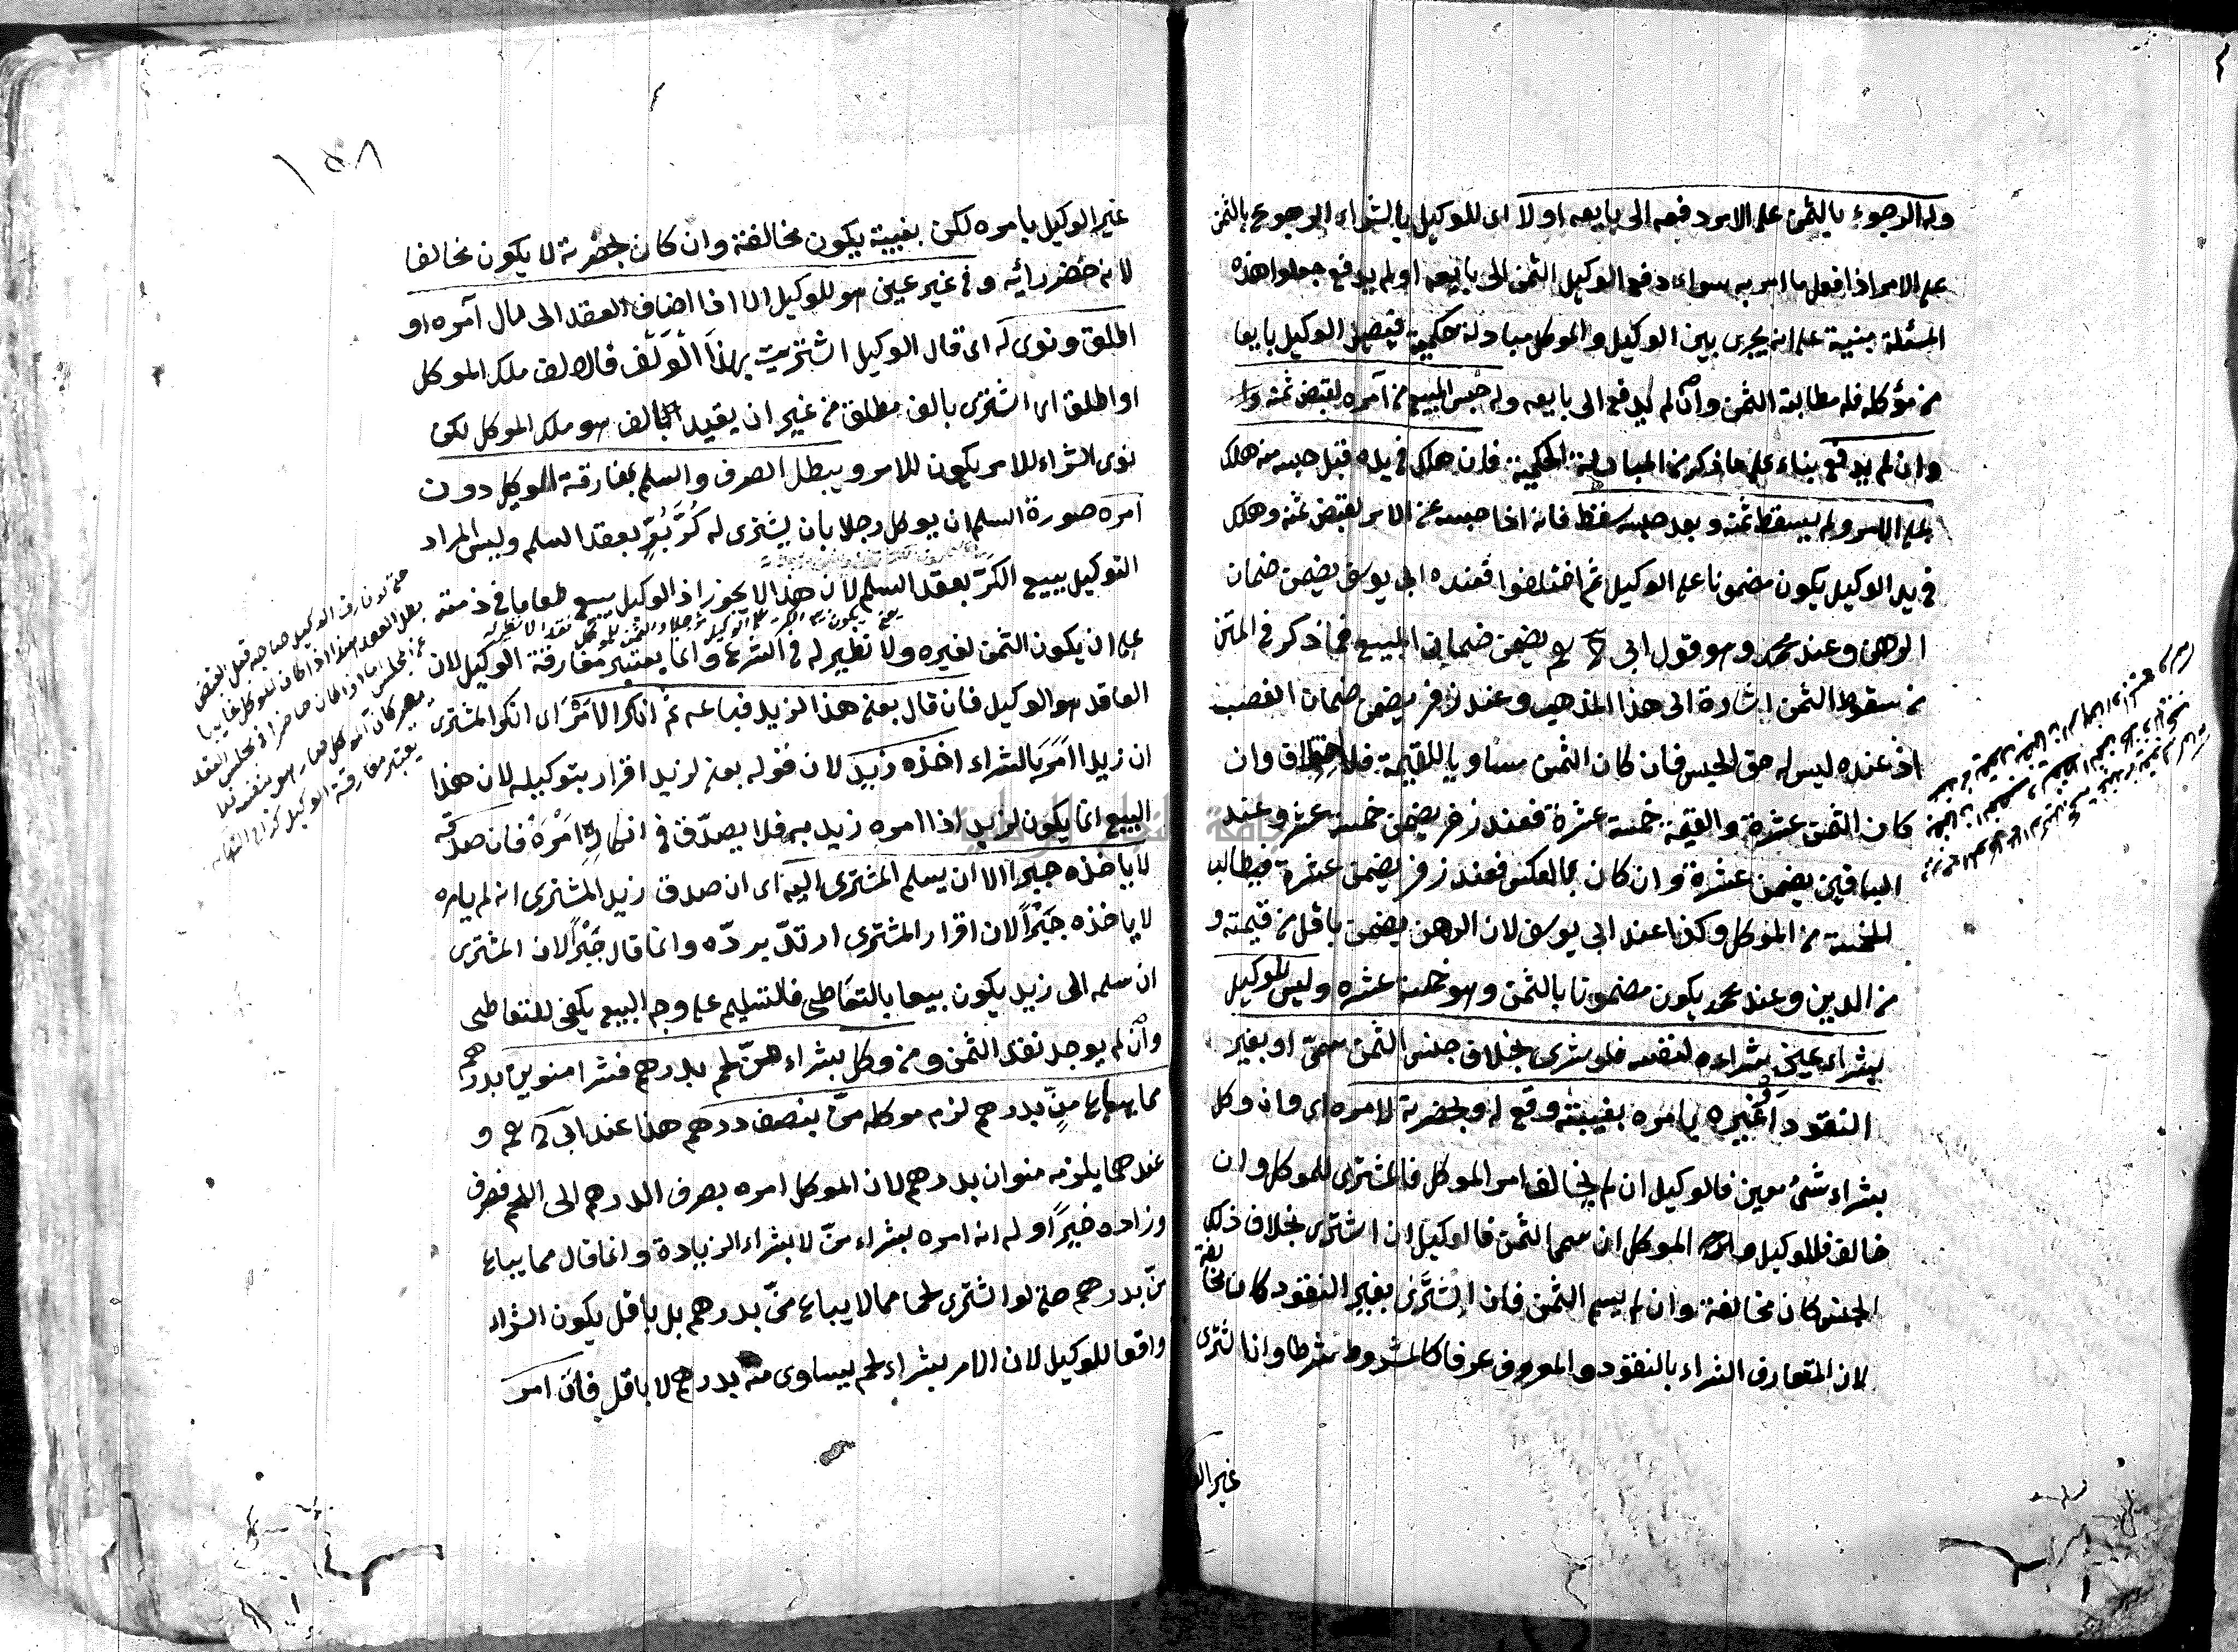 وله الرجوع بالثمن على الامر دفعه الى بايعه او لا اى للوكيل بالشراء الرجوع بالثمن
على الامر اذا فعل ما امر به سواء دفع الوكيل الثمن الى بايعه او لم يدفع جعلوا هذه
المسئلة مبنية على انه يجرى بين الوكيل والموكل مبادلة حكمية فيصير الوكيل بايعا
من موكله فله مطالبة الثمن وان لم يدفع الى بايعه وله حبس المبيع من آمره لقبض ثمنه
وان لم يدفع بناء على ما ذكر من المبادلة الحكمية فان هلك فى يده قبل حبسه منه هلك
على الامر ولم يسقط ثمنه وبعد حبسه سقط فانه اذا حبسه عن الامر لقبض ثمنه وهلك
فى يد الوكيل يكون مضمونا على الوكيل ثم اختلفوا فعند ابى يوسف يضمن ضمان
الرهن وعند محمد وهو قول ابى ح رح يضمن ضمان المبيع فما ذكر فى المتن
من سقوط الثمن اشارة الى هذا المذهب وعند زفر يضمن ضمان الغصب
اذ عنده ليس له حق الحبس فان كان الثمن مساويا للقيمة فلا اختلاف وان
كان الثمن عشرة والقيمة خمسة عشرة فعند زفر يضمن خمسة عشر وعند
الباقين يضمن عشرة وان كان بالعكس فعند زفر يضمن عشرة فيطالب
الخمسة من الموكل وكذا عند ابى يوسف لان الرهن يضمن باقل من قيمته و
من الدين وعند محمد يكون مضمونا بالثمن وهو خمسة عشره وليس للوكيل
بشراء عين شراءه لنفسه فلو شرى بخلاف جنس الثمن سمى او بغير
النقود او غيره بامره بغيبته وقع له وبحضرته لامره اى وان وكل
بشراء شئ معين فالوكيل ان لم يخالف امر الموكل فالمشترى للموكل وان
خالف فللوكيل الموكل ان سمى الثمن فالوكيل ان اشترى بخلاف ذلك
الجنس كان مخالفة وان لم يسم الثمن فان اشترى بغير النقود كان مخالفة
لان المتعارف الشراء بالنقود والمعروف عرفا كالمشروط شرطا وان اشترى
غير الو
١٥٨
غير الوكيل بامره لكن بغيبته يكون مخالفة وان كان بحضرته لا يكون مخالفا
لانه حضر رائيه وفى غير عين هو للوكيل الا اذا اضاف العقد الى مال آمره او
اطلق ونوى له اى قال الوكيل اشتريت بهذا الالف فالالف ملك الموكل
او اطلق اى اشترى بالف مطلق من غير ان يقيد بالف هو ملك الموكل لكن
نوى الشراء للامر يكون للامر ويبطل الصرف والسلم بمفارقة الوكيل دون
آمره صورة السلم ان يوكل رجلا بان يشترى له كر بر بعقد السلم وليس المراد
التوكيل ببيع الكر بعقد السلم لان هذا لا يجوز اذ الوكيل يبيع طعاما فى ذمته
على ان يكون الثمن لغيره ولا نظير له فى الشرع وانما يعتبر مفارقة الوكيل لان
العاقد هو الوكيل فان قال بعنى هذا لزيد فباعه ثم انكر الامر اى انكر المشترى
ان زيدا امره بالشراء اخذه زيد لان قوله بعنى لزيد اقرار بتوكيله لان هذا
البيع انما يكون لزيد اذا امره زيد به فلا يصدق فى انكاره امره فان صدقه
لا ياخذه جبرا الا ان يسلم المشترى اليه اى ان صدق زيد المشترى انه لم يامره
لا ياخذه جبرا لان اقرار المشترى ارتد برده وانما قال جبرا لان المشترى
ان سلمه الى زيد يكون بيعا بالتعاطى فالتسليم على وجه البيع يكفى للتعاطى
وان لم يوجد نقد الثمن ومن وكل بشراء من لحم بدرهم فشرا منوين بدرهم
مما يباع من بدرهم لزم موكله من بنصف درهم هذا عند ابى ح رح و
عندهما يلزمه منوان بدرهم لان الموكل امره بصرف الدرهم الى اللحم فصرف
وزاده خيرا وله انه امره بشراء من لا بشراء الزيادة وانما قال مما يباع
من بدرهم حتى لو اشترى لحما مما لا يباع من بدرهم بل باقل يكون الشراء
واقعا للوكيل لان الامر بشراء لحم يساوى منه بدرهم لا باقل فان امر
حتى لو فارق الوكيل صاحبه قبل القبض
بطل العقد هذا اذا كان الموكل غايبا
عن المجلس اما اذا كان حاضرا فى مجلس العقد
يصير كأن الموكل صارف بنفسه فلا
يعتبر مفارقة الوكيل كذا فى النهاية